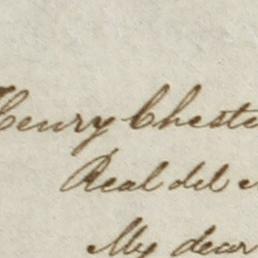 Henry Cheste
Real del
My dear